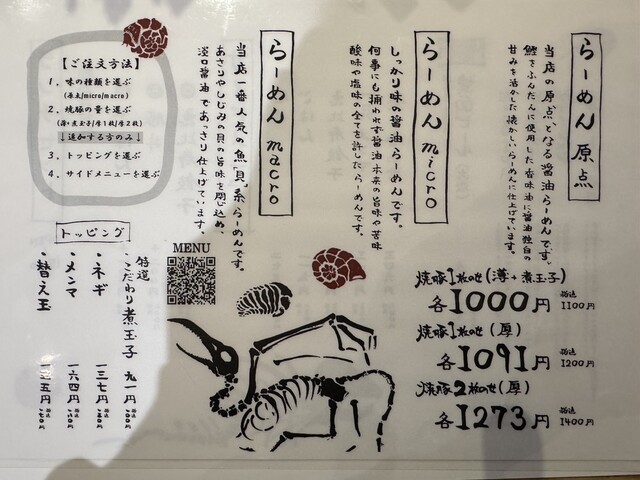 らーめん 原点
当店の原点となる醤油らーめんです。
鰹をふんだんに使用した香味油に醤油独自の
甘みを活かした懐かしいらーめんに仕上げています。
らーめん micro
しっかり味の醤油らーめんです。
何事にも捕われず醤油本来の旨味や苦味
酸味や塩味の全てを許したらーめんです。
らーめん macro
当店一番人気の魚「貝」系らーめんです。
あさりやしじみの貝の旨味を閉じ込め、
淡口醤油であっさり仕上げています。
【ご注文方法】
1、味の種類を選ぶ
(原点/micro/macro)
2、焼豚の量を選ぶ
(薄+煮玉子/厚1枚/厚2枚)
↓追加する方のみ↓
3、トッピングを選ぶ
4、サイドメニューを選ぶ
焼豚1枚のせ(薄+煮玉子)
各1000円 税込1100円
焼豚1枚のせ(厚)
各1091円 税込1200円
焼豚2枚のせ(厚)
各1273円 税込1400円
MENU
トッピング
特選
・こだわり煮玉子 九一円
・ネギ 一三七円
・メンマ 一六四円
・替え玉 一三五円